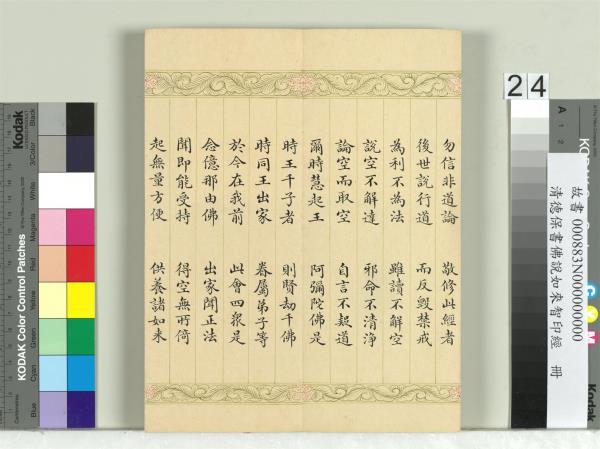 勿信非道論 敬修此經者
後世說行道 而反毀禁戒
為利不為法 雖讀不解空
說空不解達 邪命不清淨
論空而取空 自言不報道
爾時慧起王 阿彌陀佛是
時王千子者 則賢劫千佛
時同王出家 眷屬弟子等
於今在我前 此會四衆是
念億那由佛 出家聞正法
聞即能受持 得空無所倚
起無量方便 供養諸如来
24
故書 000883N000000000
清德保書佛說如來智印經 冊
Kodak
KODAK Color Control Patches
Blue
Cyan
Green
Yellow
Red
Magenta
White
3/Color
Black
A 1 2
C
Y
M